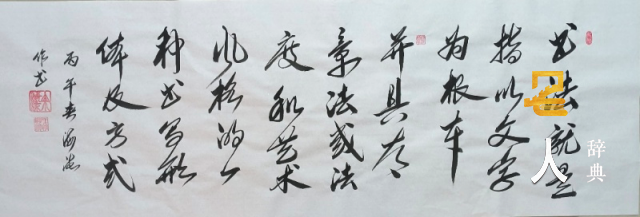 书法就是
指以文字
为根本
并具有
章法或法
度和艺术
风格的一
种书写形
体及方式
丙午春海
作书
名人
辞典